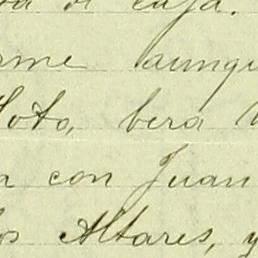 de caja.
rme aunqu
Soto, bera
a con Juan
los Altares, y